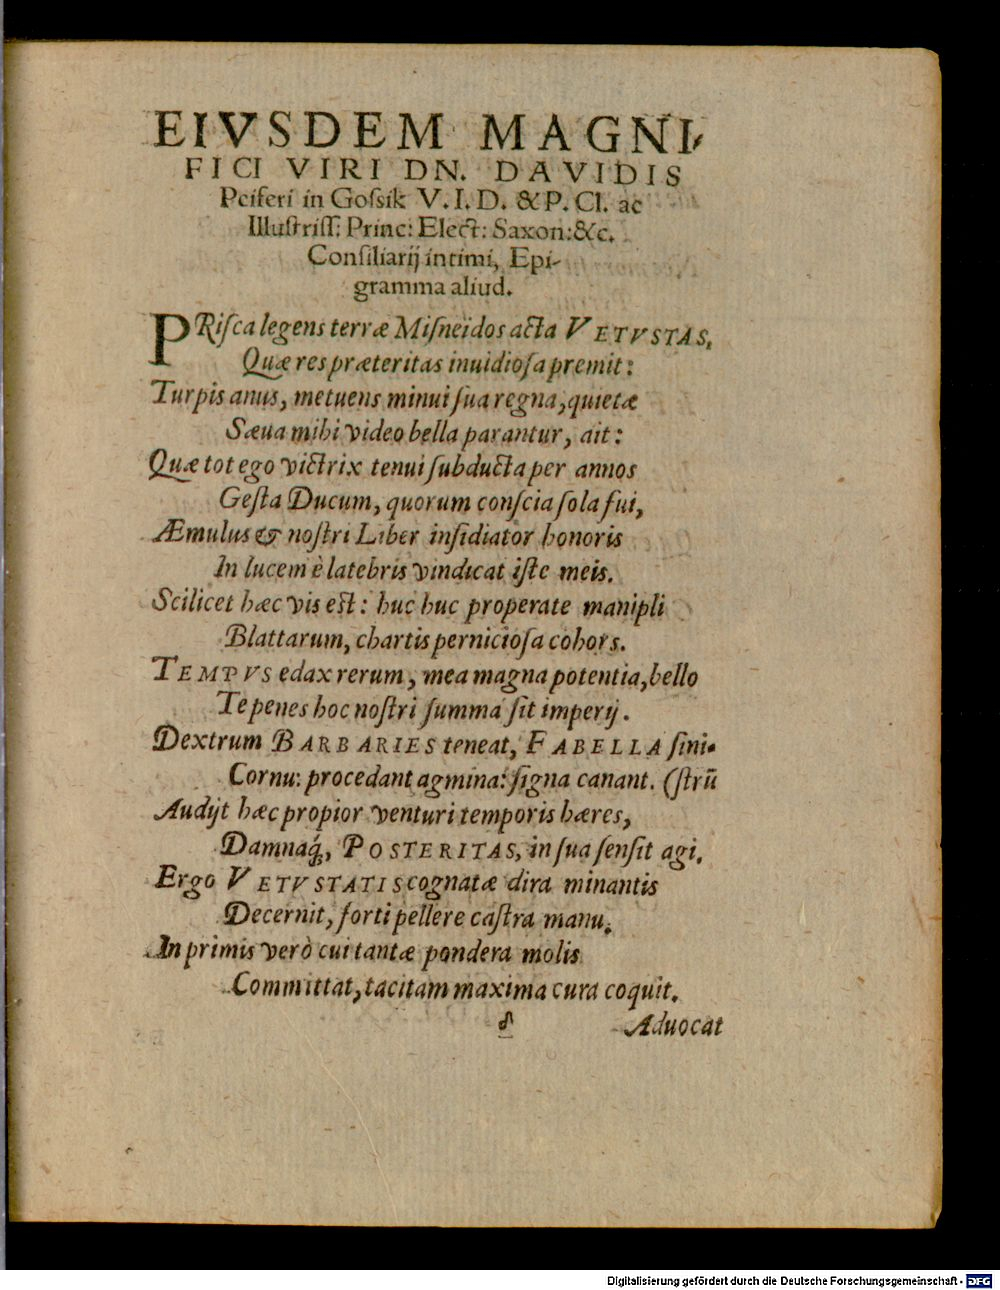 EIVSDEM MAGNI-
FICI VIRI DN. DAVIDIS
Peiferi in Goſsik V. I. D. & P. Cl. ac
Illuſtriſſ: Princ: Elect: Saxon: &c.
Conſiliarij intimi, Epi-
gramma aliud.
PRiſca legens terræ Miſneidos acta VETVSTAS,
Quæ res præteritas inuidioſa premit:
Turpis anus, metuens minui ſua regna, quietæ
Sæua mihi video bella parantur, ait:
Quæ tot ego victrix tenui ſubducta per annos
Geſta Ducum, quorum conſcia ſola fui,
Æmulus & noſtri Liber inſidiator honoris
In lucem è latebris vindicat iſte meis.
Scilicet hæc vis eſt: huc huc properate manipli
Blattarum, chartis pernicioſa cohors.
TEMPVS edax rerum, mea magna potentia, bello
Te penes hoc noſtri ſumma ſit imperij.
Dextrum BARBARIES teneat, FABELLA ſini-
Cornu: procedant agmina: ſigna canant. (ſtrũ
Audijt hæc propior venturi temporis hæres,
Damnaq́;, POSTERITAS, in ſua ſenſit agi.
Ergo VETVSTATIS cognatæ dira minantis
Decernit, forti pellere caſtra manu.
In primis verò cui tantæ pondera molis
Committat, tacitam maxima cura coquit.
Aduocat
Digitalisierung gefördert durch die Deutsche Forschungsgemeinschaft - DFG